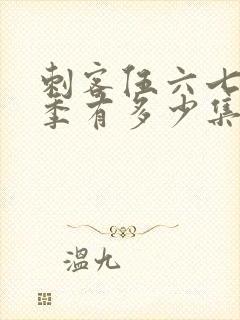 刺客伍六七
季有多少集
温九